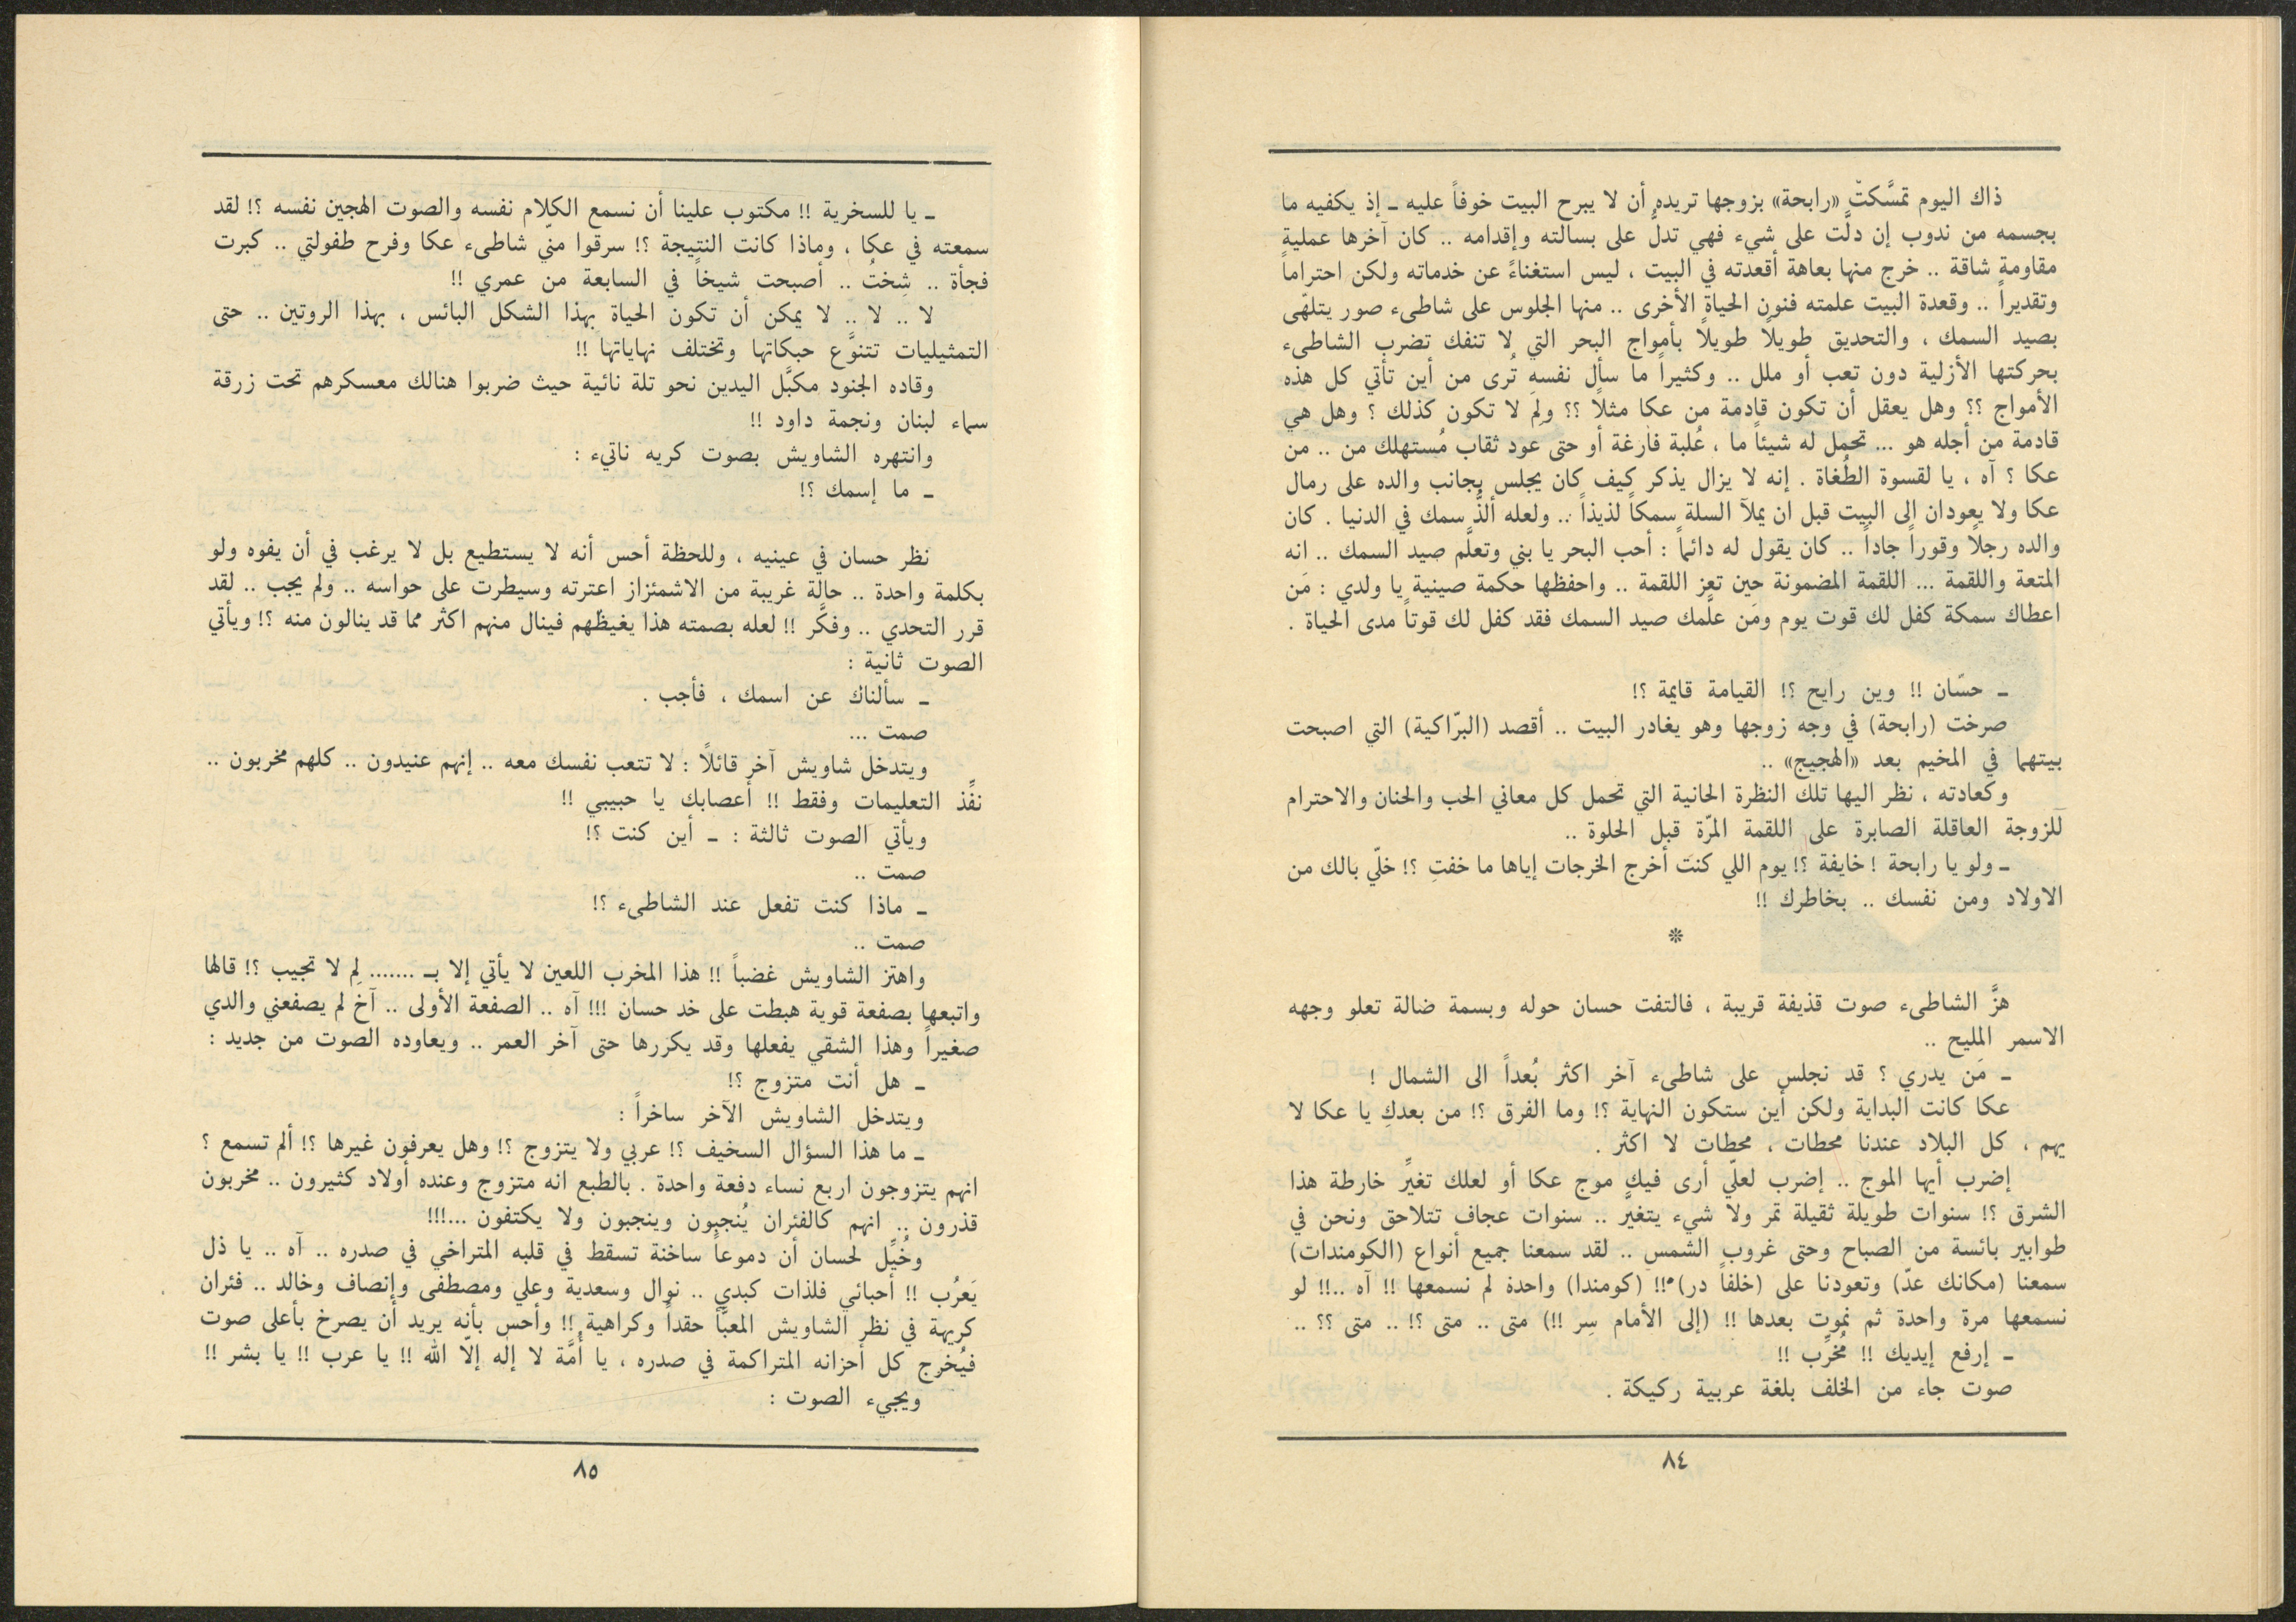 ذاك اليوم تمسَّكتْ «رابحة» بزوجها تريده أن لا يبرح البيت خوفاً عليه ـ إذ يكفيه ما
بجسمه من ندوب إن دلَّت على شيء فهي تدلُّ على بسالته وإقدامه .. كان آخرها عملية
مقاومة شاقة .. خرج منها بعاهة أقعدته في البيت ، ليس استغناءً عن خدماته ولكن احتراماً
وتقديراً .. وقعدة البيت علمته فنون الحياة الأخرى .. منها الجلوس على شاطىء صور يتلهّى
بصيد السمك ، والتحديق طويلاً طويلاً بأمواج البحر التي لا تنفك تضرب الشاطىء
بحركتها الأزلية دون تعب أو ملل .. وكثيراً ما سأل نفسه تُرى من أين تأتي كل هذه
الأمواج ؟؟ وهل يعقل أن تكون قادمة من عكا مثلاً ؟؟ ولِمَ لا تكون كذلك ؟ وهل هي
قادمة من أجله هو ... تحمل له شيئاً ما ، عُلبة فارغة أو حتى عود ثقاب مُستهلك من .. من
عكا ؟ آه ، يا لقسوة الطُغاة . إنه لا يزال يذكر كيف كان يجلس بجانب والده على رمال
عكا ولا يعودان إلى البيت قبل ان يملآ السلة سمكاً لذيذاً .. ولعله ألذُّ سمك في الدنيا . كان
والده رجلاً وقوراً جاداً .. كان يقول له دائماً : أحب البحر يا بني وتعلَّم صيد السمك .. انه
المتعة واللقمة ... اللقمة المضمونة حين تعز اللقمة .. واحفظها حكمة صينية يا ولدي : مَن
اعطاك سمكة كفل لك قوت يوم ومَن علَّمك صيد السمك فقد كفل لك قوتاً مدى الحياة .
ـ حسّان !! وين رايح ؟! القيامة قايمة ؟!
صرخت (رابحة) في وجه زوجها وهو يغادر البيت .. أقصد (البرّاكية) التي اصبحت
بيتهما في المخيم بعد «الهجيج» ..
وكعادته ، نظر اليها تلك النظرة الحانية التي تحمل كل معاني الحب والحنان والاحترام
للزوجة العاقلة الصابرة على اللقمة المرّة قبل الحلوة ..
ـ ولو يا رابحة ! خايفة ؟! يوم اللي كنت أخرج الخرجات إياها ما خفتِ ؟! خلّي بالك من
الاولاد ومن نفسك .. بخاطرك !!
*
هزَّ الشاطىء صوت قذيفة قريبة ، فالتفت حسان حوله وبسمة ضالة تعلو وجهه
الاسمر المليح ..
ـ مَن يدري ؟ قد نجلس على شاطىء آخر اكثر بُعداً الى الشمال !
عكا كانت البداية ولكن أين ستكون النهاية ؟! وما الفرق ؟! من بعدكِ يا عكا لا
يهم ، كل البلاد عندنا محطات ، محطات لا اكثر .
إضرب أيها الموج .. إضرب لعلّي أرى فيك موج عكا أو لعلك تغيِّر خارطة هذا
الشرق ؟! سنوات طويلة ثقيلة تمر ولا شيء يتغيَّر .. سنوات عجاف تتلاحق ونحن في
طوابير بائسة من الصباح وحتى غروب الشمس .. لقد سمعنا جميع أنواع (الكومندات)
سمعنا (مكانك عدّ) وتعودنا على (خلفاً در)!! (كومندا) واحدة لم نسمعها !! آه ..!! لو
نسمعها مرة واحدة ثم نموت بعدها !! (إلى الأمام سِر !!) متى .. متى ؟! .. متى ؟؟ ..
ـ إرفع إيديك !! مُخرِّب !!
صوت جاء من الخلف بلغة عربية ركيكة .
٨٤
ـ يا للسخرية !! مكتوب علينا أن نسمع الكلام نفسه والصوت الهجين نفسه ؟! لقد
سمعته في عكا ، وماذا كانت النتيجة ؟! سرقوا منّي شاطىء عكا وفرح طفولتي .. كبرت
فجأة .. شِختُ .. أصبحت شيخاً في السابعة من عمري !!
لا .. لا .. لا يمكن أن تكون الحياة بهذا الشكل البائس ، بهذا الروتين .. حتى
التمثيليات تتنوَّع حبكاتها وتختلف نهاياتها !!
وقاده الجنود مكبَّل اليدين نحو تلة نائية حيث ضربوا هنالك معسكرهم تحت زرقة
سماء لبنان ونجمة داود !!
وانتهره الشاويش بصوت كريه ناتىء :
ـ ما إسمك ؟!
نظر حسان في عينيه ، وللحظة أحس أنه لا يستطيع بل لا يرغب في أن يفوه ولو
بكلمة واحدة .. حالة غريبة من الاشمئزاز اعترته وسيطرت على حواسه .. ولم يجب .. لقد
قرر التحدي .. وفكَّر !! لعله بصمته هذا يغيظهم فينال منهم اكثر مما قد ينالون منه ؟! ويأتي
الصوت ثانية :
ـ سألناك عن اسمك ، فأجب .
صمت ...
ويتدخل شاويش آخر قائلاً : لا تتعب نفسك معه .. إنهم عنيدون .. كلهم مخربون ..
نفِّذ التعليمات وفقط !! أعصابك يا حبيبي !!
ويأتي الصوت ثالثة : ـ أين كنت ؟!
صمت ..
ـ ماذا كنت تفعل عند الشاطىء ؟!
صمت ..
واهتز الشاويش غضباً !! هذا المخرب اللعين لا يأتي إلا بـ ....... لِم لا تجيب ؟! قالها
واتبعها بصفعة قوية هبطت على خد حسان !!! آه .. الصفعة الأولى .. آخ لم يصفعني والدي
صغيراً وهذا الشقي يفعلها وقد يكررها حتى آخر العمر .. ويعاوده الصوت من جديد :
ـ هل أنت متزوج ؟!
ويتدخل الشاويش الآخر ساخراً :
ـ ما هذا السؤال السخيف ؟! عربي ولا يتزوج ؟! وهل يعرفون غيرها ؟! ألم تسمع ؟
انهم يتزوجون اربع نساء دفعة واحدة . بالطبع انه متزوج وعنده أولاد كثيرون .. مخربون
قذرون .. انهم كالفئران يُنجبون وينجبون ولا يكتفون ...!!!
وخُيِّل لحسان أن دموعاً ساخنة تسقط في قلبه المتراخي في صدره .. آه .. يا ذل
يَعرُب !! أحبائي فلذات كبدي .. نوال وسعدية وعلي ومصطفى وإنصاف وخالد .. فئران
كريهة في نظر الشاويش المعبَّأ حقداً وكراهية !! وأحس بأنه يريد أن يصرخ بأعلى صوت
فيُخرِج كل أحزانه المتراكمة في صدره ، يا أُمَّة لا إله إلّا الله !! يا عرب !! يا بشر !!
ويجيء الصوت :
٨٥